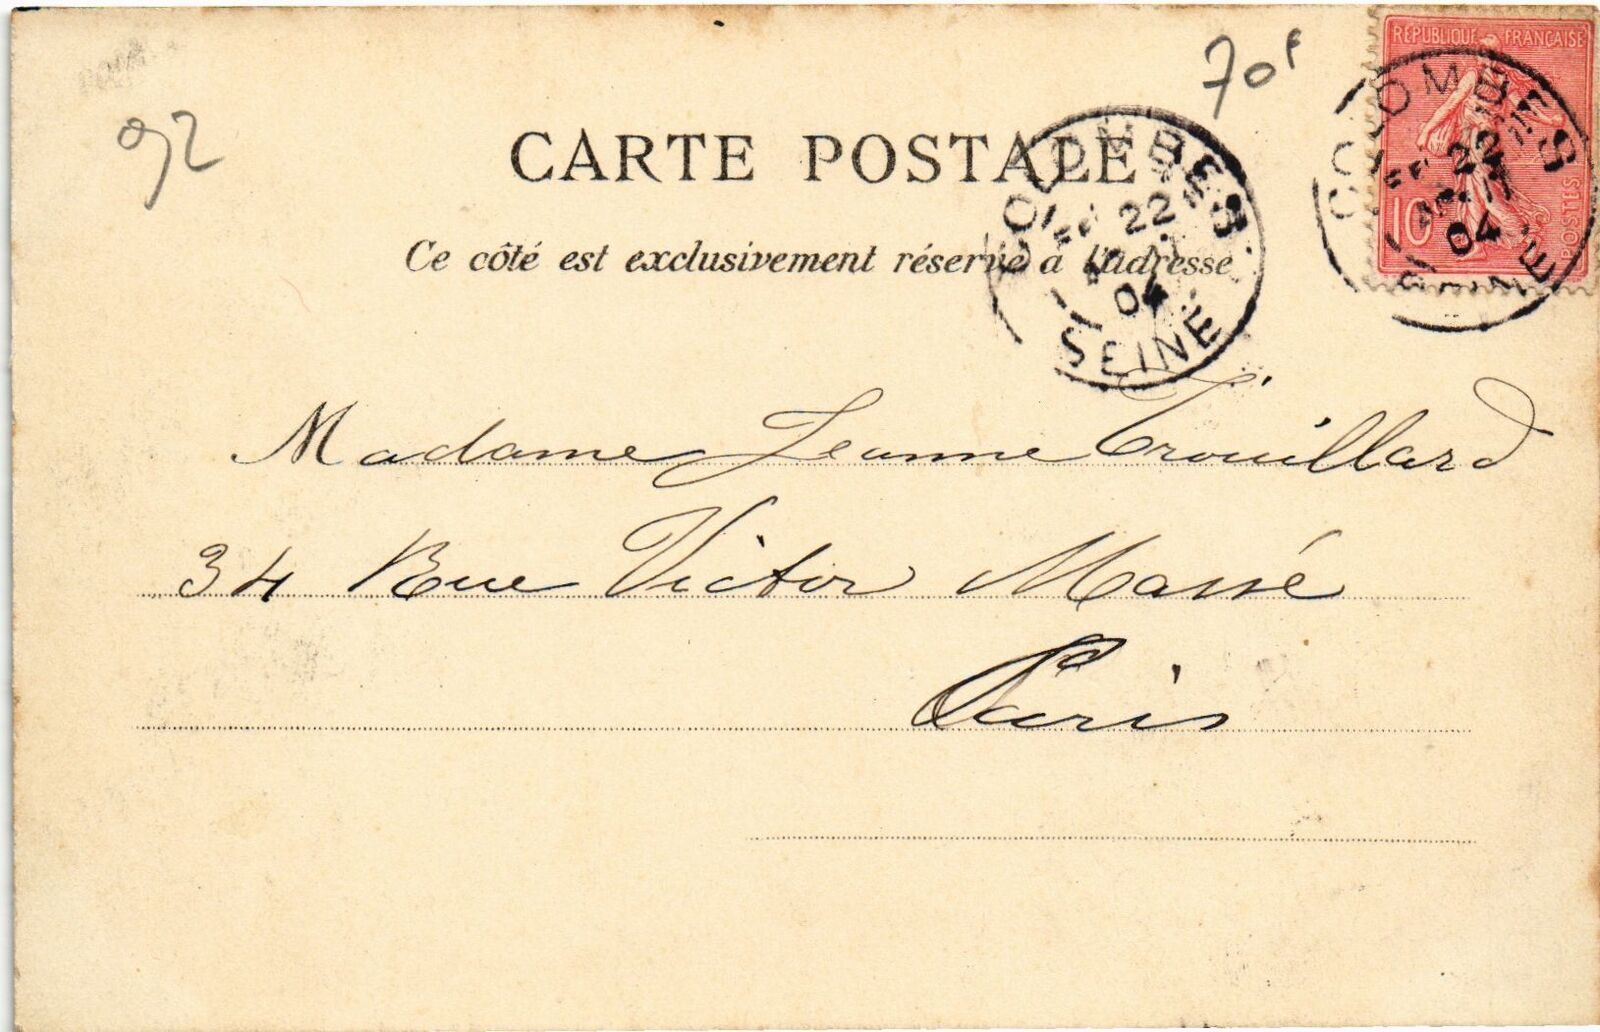 92
70F
RÉPUBLIQUE FRANÇAISE
10
POSTES
COLOMBES
22
04
SEINE
CARTE POSTALE
COLOMBES
22
04
SEINE
Ce côté est exclusivement réservé à l'adresse
Madame Jeanne Trouillard
34 Rue Victor Massé
Paris